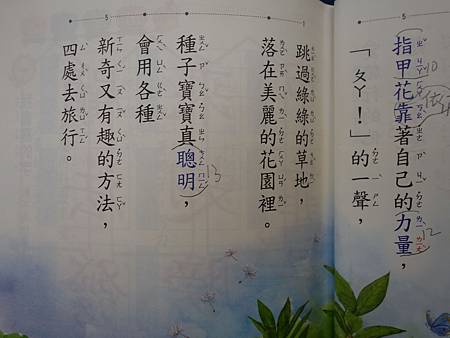 指甲花靠著自己的力量，
「ㄆㄚ！」的一聲，
跳過綠綠的草地，
落在美麗的花園裡。
種子寶寶真聰明，
會用各種
新奇又有趣的方法，
四處去旅行。
10
12
13
5
1
5